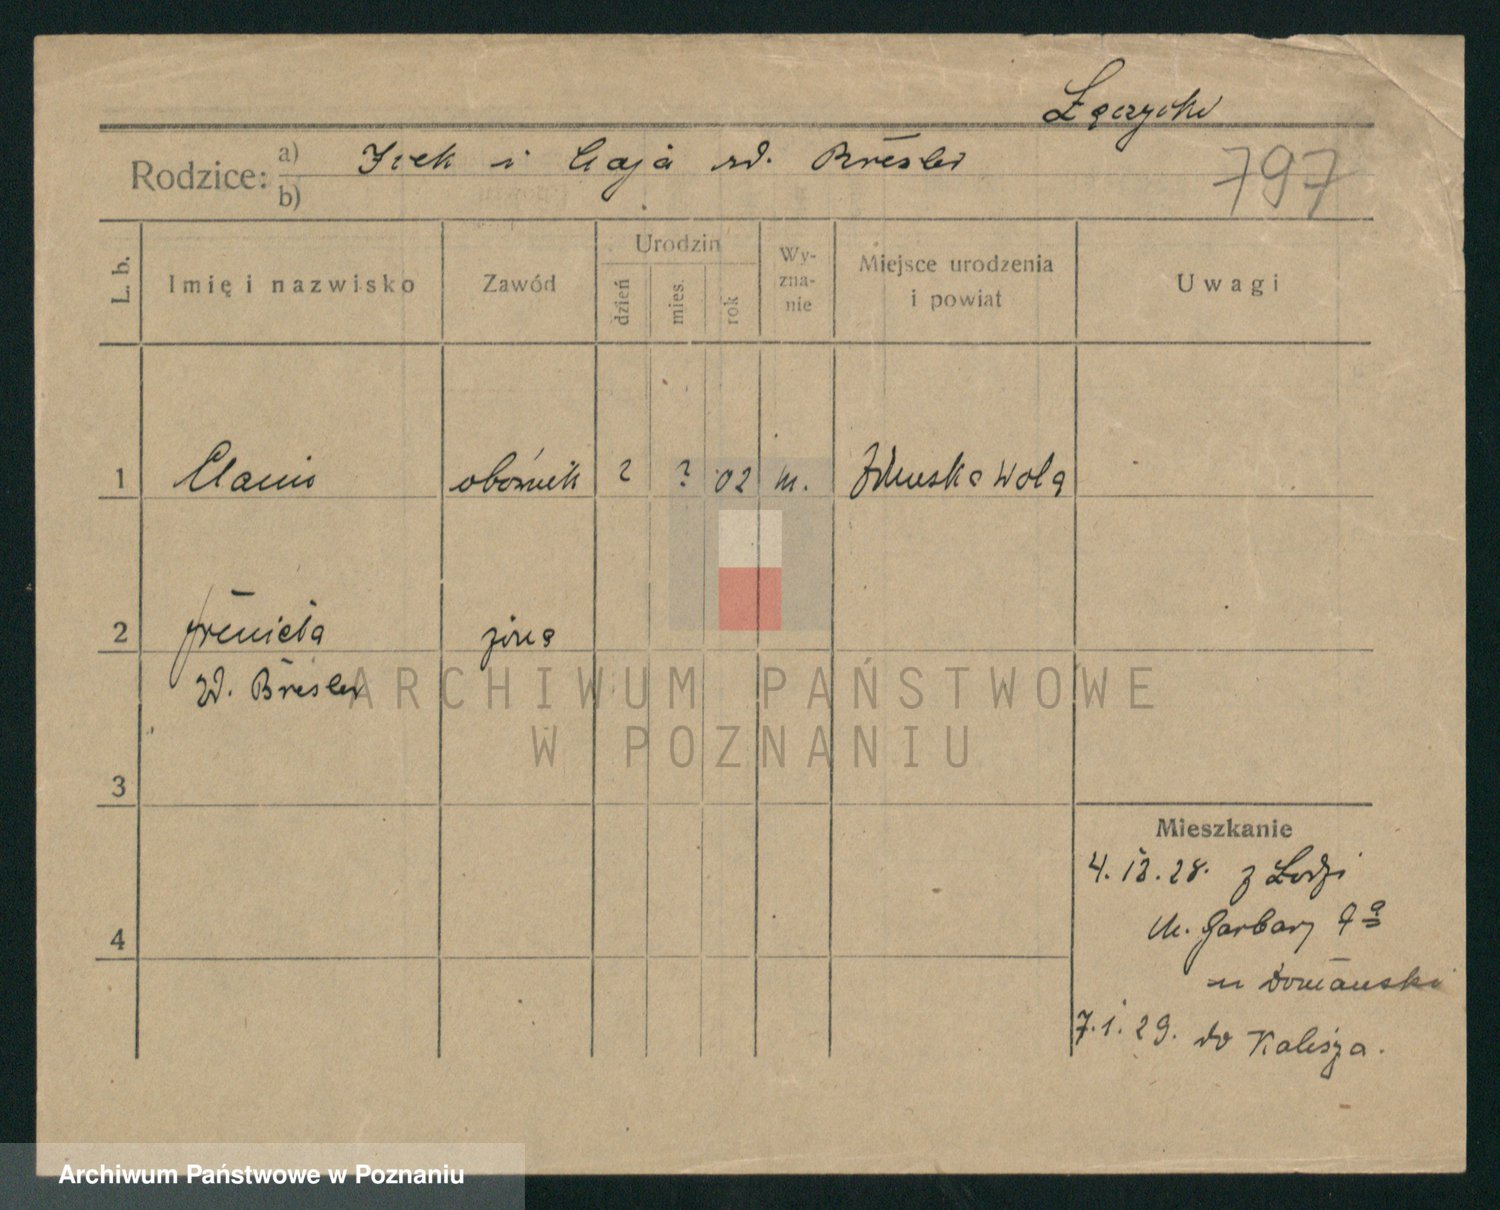 Łęczycki
Rodzice: a) Icek i Chaja zd. Bresler
b)
797
L. b. Imię i nazwisko Zawód Urodzin dzień mies. rok Wyznanie Miejsce urodzenia i powiat Uwagi
1 ? ? 02 m. Zduńska Wola
2 żona
zd. Bresler
3
Mieszkanie
4. 12. 28. z Łodzi
4 ul. Garbary
u Domański
7. 1. 29. do Kalisza.
ARCHIWUM PAŃSTWOWE
W POZNANIU
Archiwum Państwowe w Poznaniu